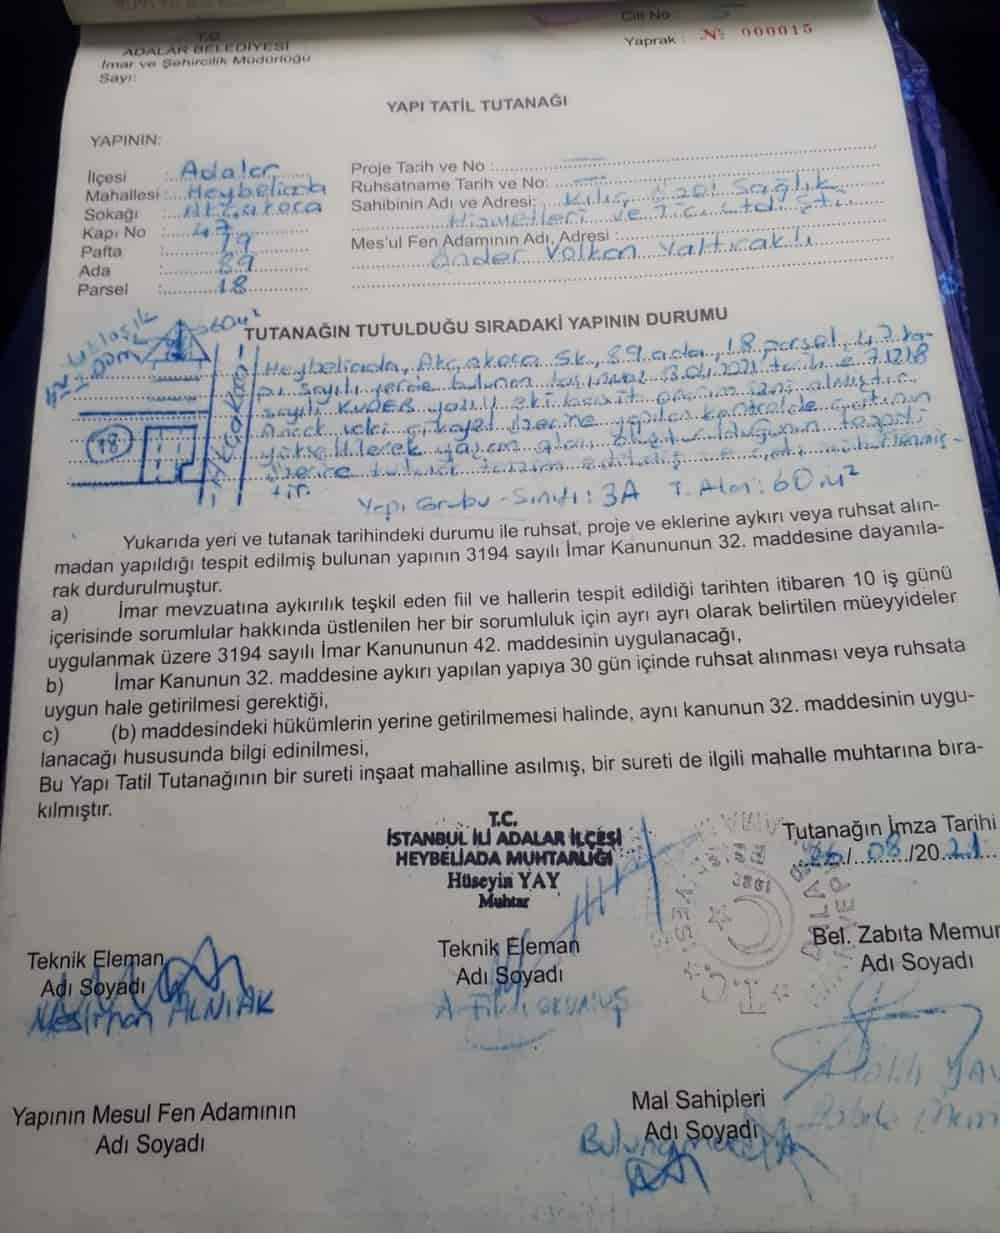 T.C.
ADALAR BELEDİYESİ
İmar ve Şehircilik Müdürlüğü
Sayı:
Cilt No :
Yaprak : Nº 000015
YAPI TATİL TUTANAĞI
YAPININ:
İlçesi : Adalar
Mahallesi : Heybeliada
Sokağı : Akçakoca
Kapı No : 47
Pafta : 79
Ada : 89
Parsel : 18
Proje Tarih ve No :
Ruhsatname Tarih ve No:
Sahibinin Adı ve Adresi: Kılıç Özel Sağlık
Hizmetleri ve Tic. Ltd. Şti
Mes'ul Fen Adamının Adı, Adresi :
Önder Volkan Yaltıraklı
TUTANAĞIN TUTULDUĞU SIRADAKİ YAPININ DURUMU
60 m²
Akçakoca
18
Heybeliada, Akçakoca Sk., 89 ada, 18 parsel, 47 ka-
pı sayılı yerde bulunan 2021 tarih
sayılı KUDEB yazısı eki basit onarım izni almıştır.
Ancak şikayet üzerine yapılan kontrolde çatının
yükseltilerek yaşam alanı tespiti
üzerine
tir.
Yapı Grubu - Sınıfı : 3A T. Alan : 60 m²
Yukarıda yeri ve tutanak tarihindeki durumu ile ruhsat, proje ve eklerine aykırı veya ruhsat alın-
madan yapıldığı tespit edilmiş bulunan yapının 3194 sayılı İmar Kanununun 32. maddesine dayanıla-
rak durdurulmuştur.
a) İmar mevzuatına aykırılık teşkil eden fiil ve hallerin tespit edildiği tarihten itibaren 10 iş günü
içerisinde sorumlular hakkında üstlenilen her bir sorumluluk için ayrı ayrı olarak belirtilen müeyyideler
uygulanmak üzere 3194 sayılı İmar Kanununun 42. maddesinin uygulanacağı,
b) İmar Kanunun 32. maddesine aykırı yapılan yapıya 30 gün içinde ruhsat alınması veya ruhsata
uygun hale getirilmesi gerektiği,
c) (b) maddesindeki hükümlerin yerine getirilmemesi halinde, aynı kanunun 32. maddesinin uygu-
lanacağı hususunda bilgi edinilmesi,
Bu Yapı Tatil Tutanağının bir sureti inşaat mahalline asılmış, bir sureti de ilgili mahalle muhtarına bıra-
kılmıştır.
T.C.
İSTANBUL İLİ ADALAR İLÇESİ
HEYBELİADA MUHTARLIĞI
Hüseyin YAY
Muhtar
Tutanağın İmza Tarihi
26/08/2021
Teknik Eleman
Adı Soyadı
Neslihan ALNIAK
Teknik Eleman
Adı Soyadı
Bel. Zabıta Memur
Adı Soyadı
Yapının Mesul Fen Adamının
Adı Soyadı
Mal Sahipleri
Adı Soyadı